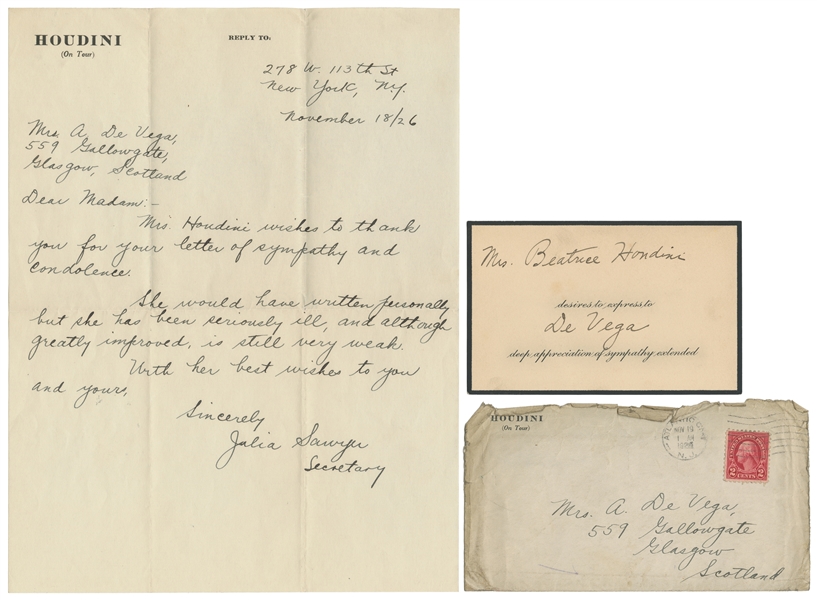 HOUDINI
(On Tour)
REPLY TO:
278 W. 113th St
New York, Ny.
November 18/26
Mrs. A. De Vega,
559 Gallowgate,
Glasgow, Scotland
Dear Madam:-
Mrs. Houdini wishes to thank
you for your letter of sympathy and
condolence.
She would have written personally
but she has been seriously ill, and although
greatly improved, is still very weak.
With her best wishes to you
and yours,
Sincerely
Julia Sawyer
Secretary
Mrs. Beatrice Houdini
desires to express to
De Vega
deep appreciation of sympathy extended
HOUDINI
(On Tour)
NOV 19
1926
N.J.
2 CENTS 2
Mrs. A. De Vega,
559 Gallowgate
Glasgow
Scotland